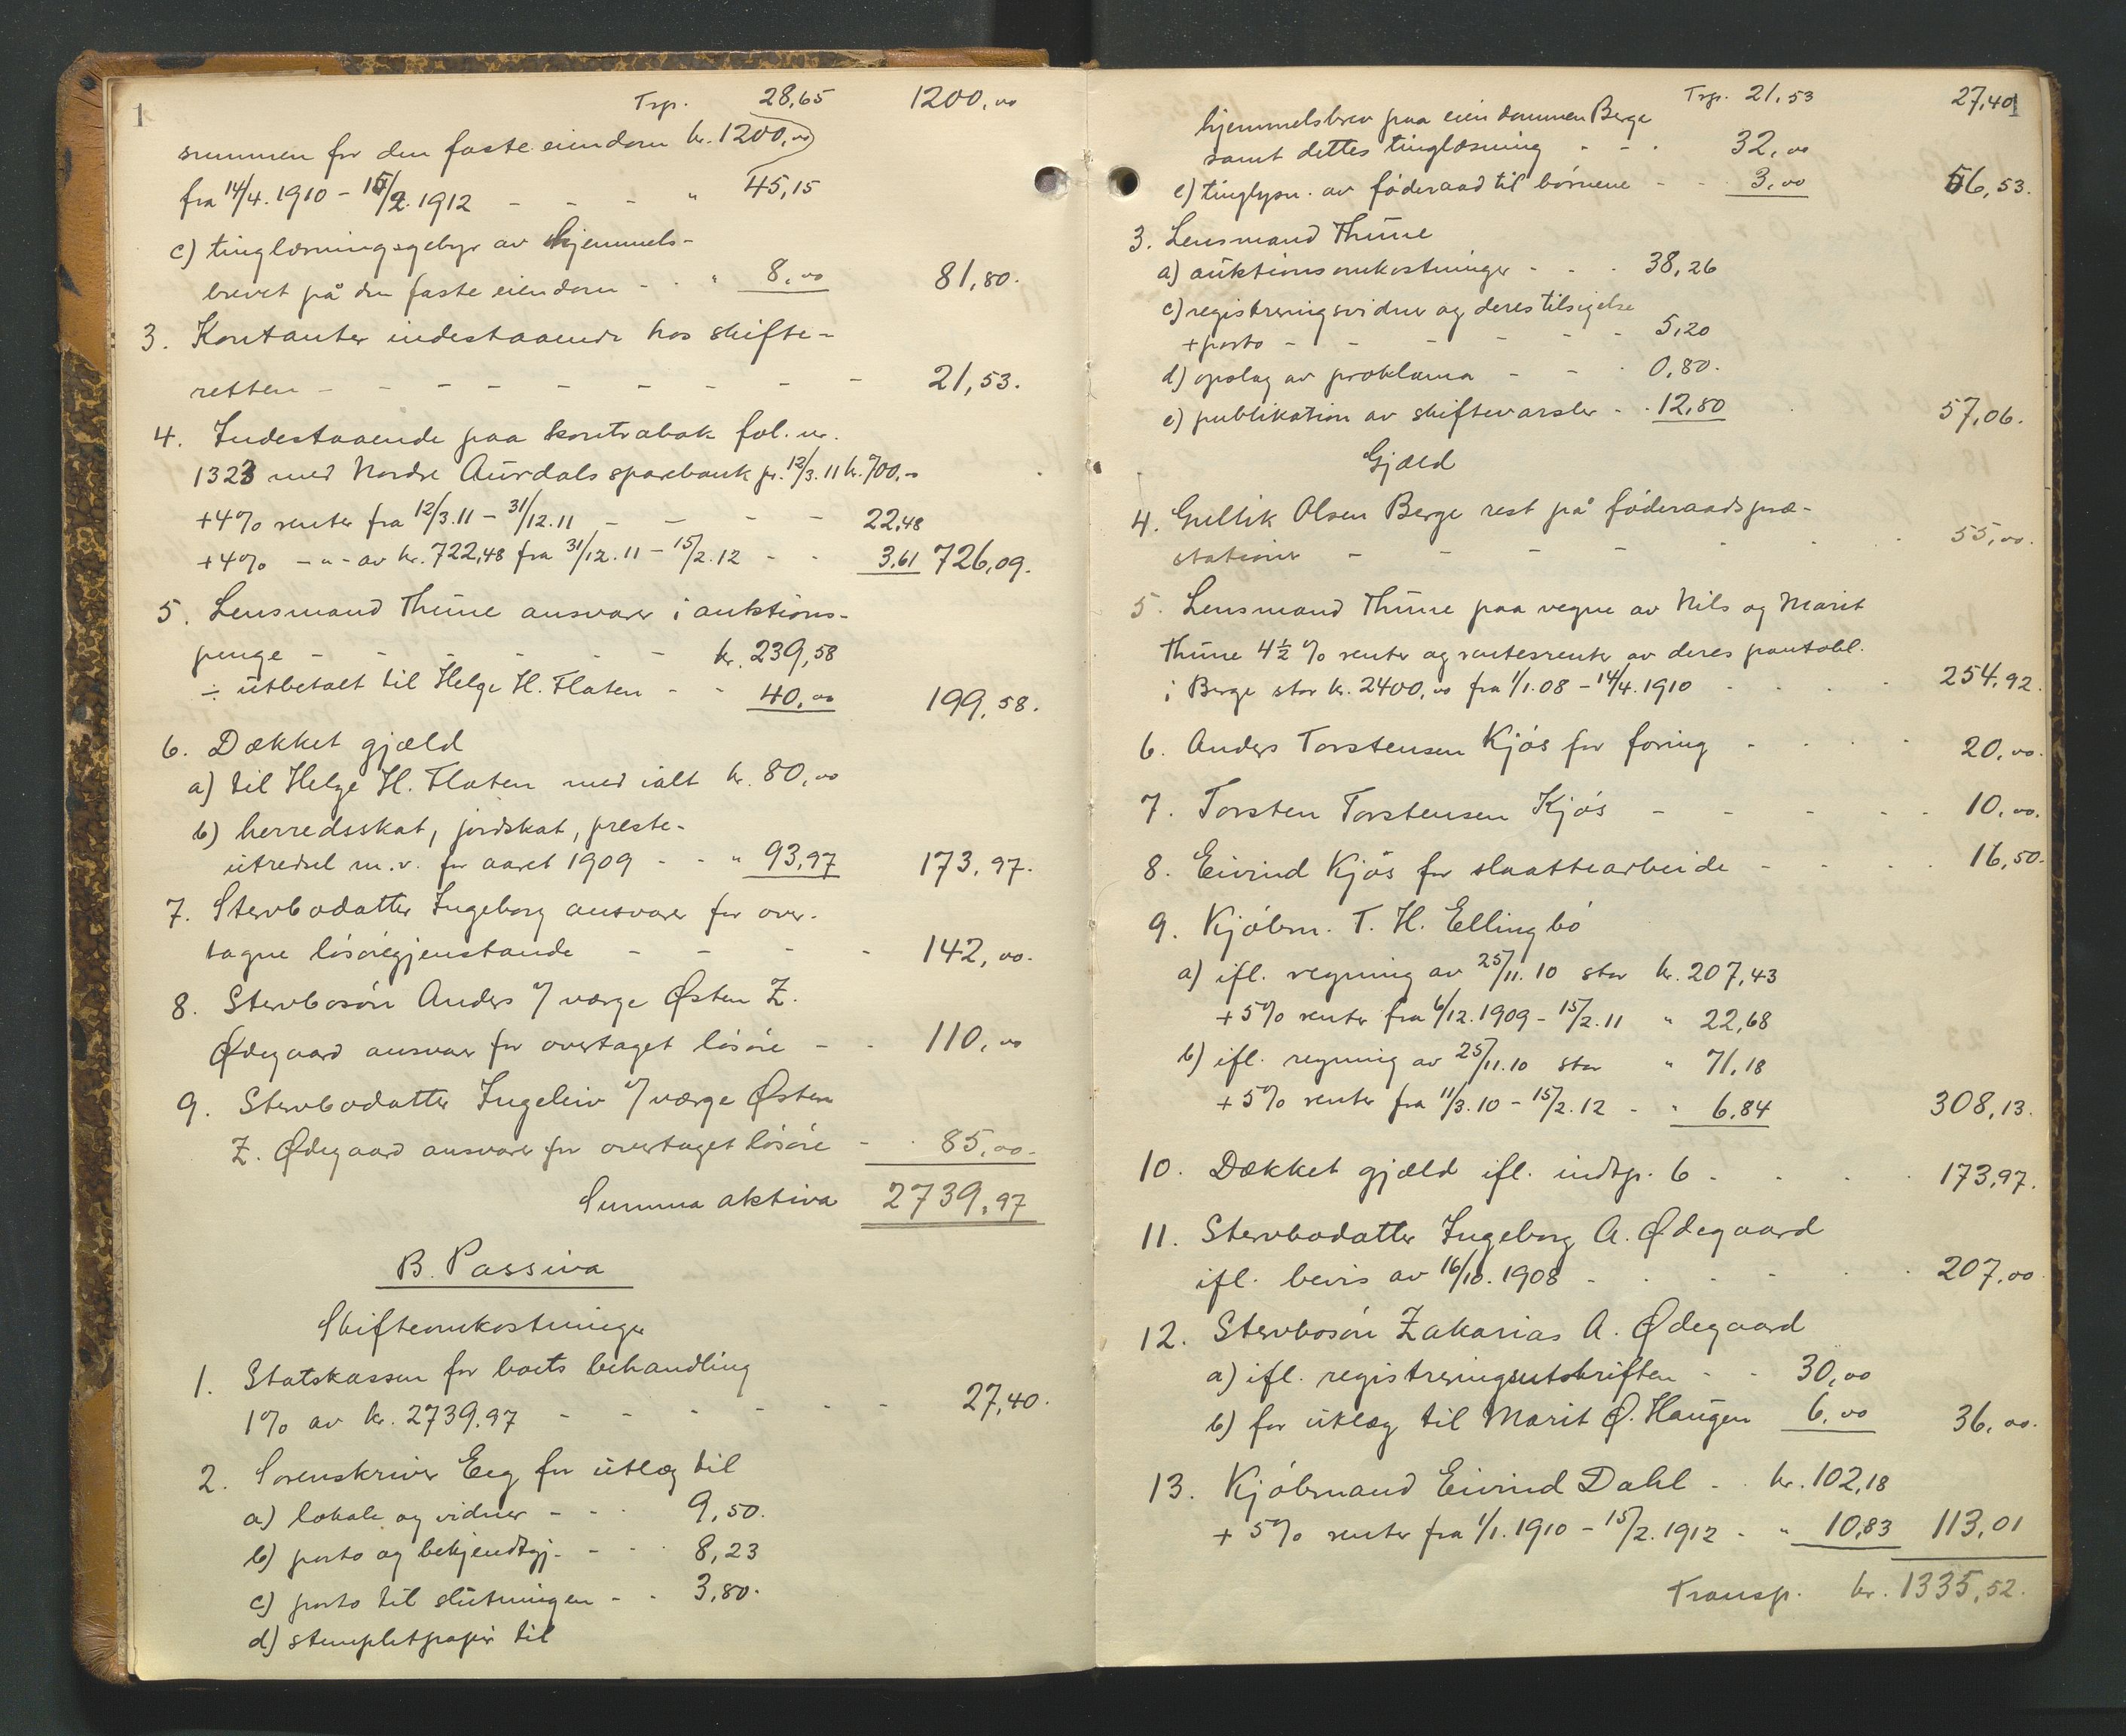 1
Trp. 28,65 1200,00
summen for den faste eiendom kr. 1200,00
fra 14/4. 1910 - 15/2. 1912 - - - " 45,15
c) tinglæsningsgebyr av hjemmels-
brevet på den faste eiendom - - " 8,00 81,80.
3. Kontanter indestaaende hos skifte-
retten - - - - - - - - - 21,53.
4. Indestaaende paa kontrabok fol. nr.
1323 med Nordre Aurdals sparebank pr. 12/3. 11 kr. 700,-
+ 4% renter fra 12/3. 11 - 31/12. 11 - - - - 22,48
+ 4% - " - av kr. 722,48 fra 31/12. 11 - 15/2. 12 - - 3,61 726,09.
5. Lensmand Thune ansvarer i auktions-
penge - - - - - - kr. 239,58
÷ utbetalt til Helge H. Flaten - - 40,00 199,58.
6. Dækket gjæld
a) til Helge H. Flaten med ialt kr. 80,00
b) herredsskat, jordskat, preste-
utredsel m. v. for aaret 1909 - - " 93,97 173,97.
7. Stervbodatter Ingeborg ansvarer for over-
tagne løsøregjenstande - - - - 142,00.
8. Stervbosøn Anders v/ værge Østen Z.
Ødegaard ansvarer for overtaget løsøre - - 110,00
9. Stervbodatter Ingeleiv v/ værge Østen
Z. Ødegaard ansvarer for overtaget løsøre - - 85,00.
Summa aktiva 2739,97
B. Passiva
Skifteomkostninger
1. Statskassen for boets behandling
1% av kr. 2739,97 - - - - - - 27,40.
2. Sorenskriver Eeg for utlæg til
a) lokale og vidner - - - 9,50.
b) porto og bekjendtgj. - - - 8,23
c) porto til slutningen - - 3,80.
d) stempletpapir til
Trp. 21,53 27,40
hjemmelsbrev paa eiendommen Berge
samt dettes tinglæsning - - - 32,00
e) tinglysn. av føderaad til børnene - - 3,00 56,53.
3. Lensmand Thune
a) auktionsomkostninger - - - 38,26
c) registreringsvidner og deres tilsigelse
+ porto - - - - - - 5,20
d) opslag av proklama - - - 0,80.
e) publikation av skiftevarsler - - 12,80 57,06.
Gjæld
4. Gullik Olsen Berge rest på føderaadspræ-
stationer - - - - - - - 55,00.
5. Lensmand Thune paa vegne av Nils og Marit
Thune 4½ % renter og rentesrenter av deres pantobl.
i Berge stor kr. 2400,00 fra 1/1. 08 - 14/4. 1910 - - - - 254,92
6. Anders Torstensen Kjøs for foring - - - - 20,00.
7. Torsten Torstensen Kjøs - - - - - 10,00.
8. Eivind Kjøs for slaattearbeide - - - - 16,50.
9. Kjøbm. T. H. Ellingbø
a) ifl. regning av 25/11. 10 stor kr. 207,43
+ 5% renter fra 6/12. 1909 - 15/2. 11 " 22,68
b) ifl. regning av 25/11. 10 stor " 71,18
+ 5% renter fra 11/3. 10 - 15/2. 12 - " 6,84 308,13.
10. Dækket gjæld ifl. indtp. 6 - - - - 173,97.
11. Stervbodatter Ingeborg A. Ødegaard
ifl. bevis av 16/10. 1908 - - - - - - 207,00
12. Stervbosøn Zakarias A. Ødegaard
a) ifl. registreringsutskriften - - 30,00
b) for utlæg til Marit Ø. Haugen 6,00 36,00.
13. Kjøbmand Eivind Dahl - - kr. 102,18
+ 5% renter fra 1/1. 1910 - 15/2. 1912 - " 10,83 113,01
Transp. kr. 1335,52.